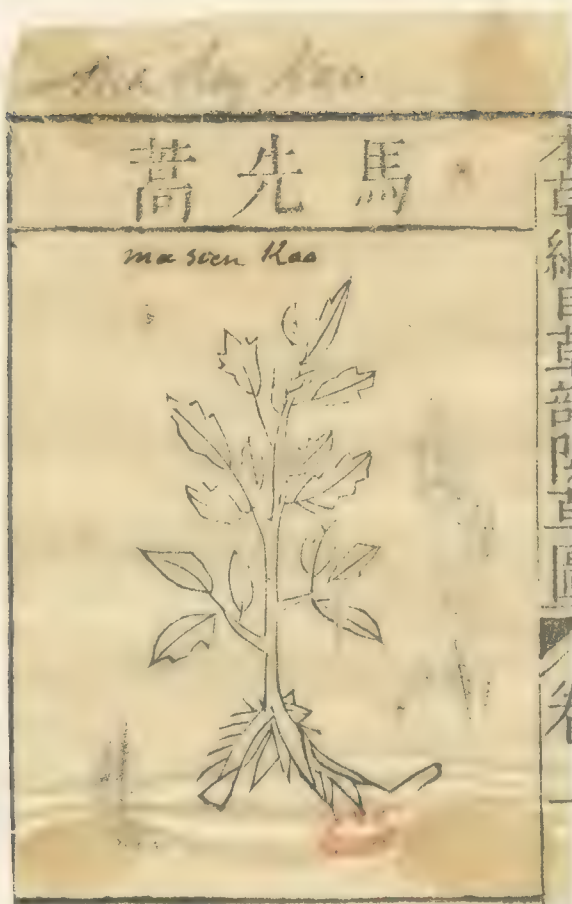 馬先蒿
ma sien Kao
本草綱目草部隰草圖
卷